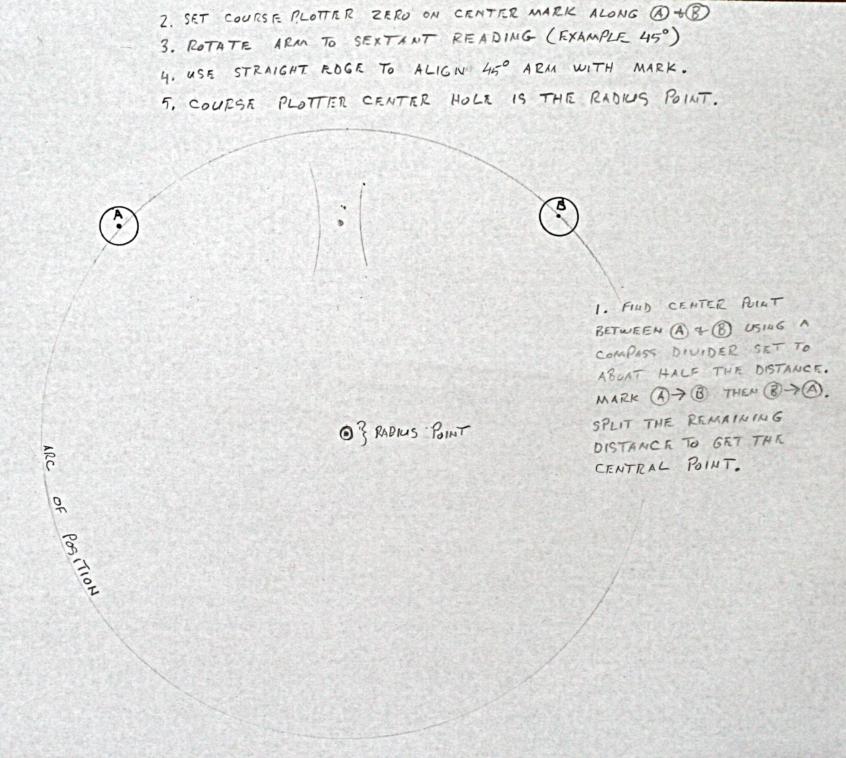 2. SET COURSE PLOTTER ZERO ON CENTER MARK ALONG Ⓐ + Ⓑ
3. ROTATE ARM TO SEXTANT READING (EXAMPLE 45°)
4. USE STRAIGHT EDGE TO ALIGN 45° ARM WITH MARK.
5. COURSE PLOTTER CENTER HOLE IS THE RADIUS POINT.
A
B
1. FIND CENTER POINT
BETWEEN Ⓐ + Ⓑ USING A
COMPASS DIVIDER SET TO
ABOUT HALF THE DISTANCE.
MARK Ⓐ→Ⓑ THEN Ⓑ→Ⓐ.
SPLIT THE REMAINING
DISTANCE TO GET THE
CENTRAL POINT.
} RADIUS POINT
ARC OF POSITION